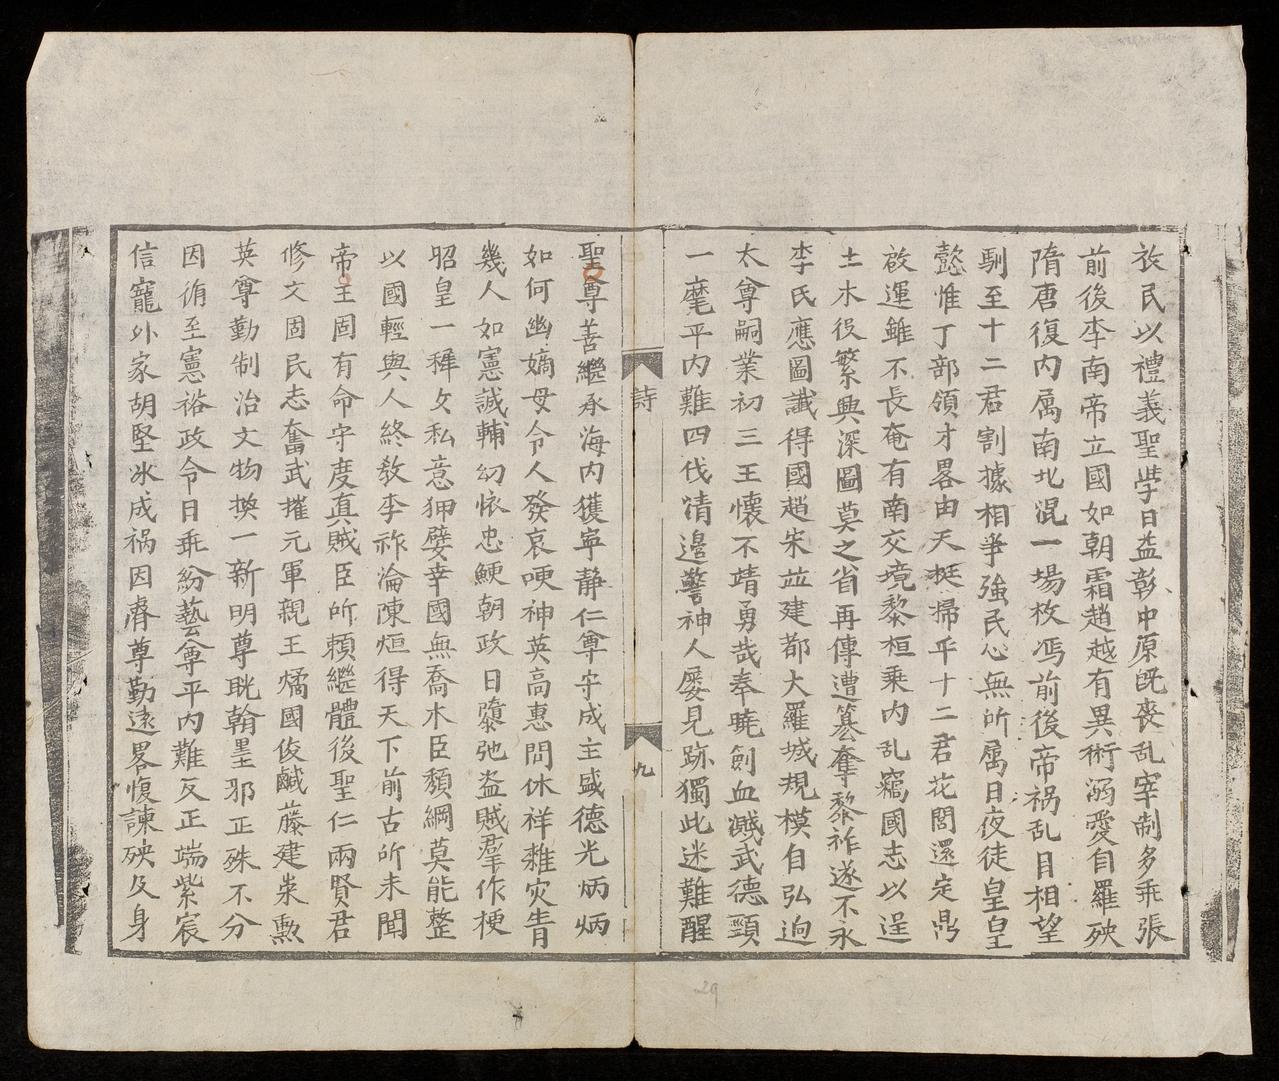 衣民以禮義聖學日益彰中原既喪乱宰制多乖張
前後李南帝立國如朝霜趙越有異術溺愛自羅殃
隋唐復内属南北混一場枚馮前後帝祸乱目相望
馴至十二君割據相爭強民心無所属日夜徒皇皇
懿惟丁部領才畧由天挺掃平十二君花閭還定鼎
啟運雖不長奄有南交境黎桓乗内乱竊國志以逞
土木役繁興深圖莫之省再傳遭簒奪黎祚遂不永
李氏應圖讖得國趙宋並建都大羅城規模自弘逈
太尊嗣業初三王懷不靖勇哉奉曉劍血濺武德頸
一麾平内難四伐清邊警神人屡見跡獨此迷難醒
詩
九
聖尊善繼承海内獲寧静仁尊守成主盛德光炳炳
如何幽嫡母令人發哀哽神英高惠問休祥雜灾眚
幾人如憲誠輔幼懷忠鯁朝政日隳弛盗賊羣作梗
昭皇一稺女私意狎嬖幸國無喬木臣頽綱莫能整
以國輕與人終教李祚淪陳烜得天下前古所未聞
帝王固有命守度真賊臣所頼繼體後聖仁兩賢君
修文固民志奮武摧元軍親王燏國俊鹹藤建崇勲
英尊勤制治文物換一新明尊耽翰墨邪正殊不分
因循至憲裕政令日乖紛藝尊平内難反正端紫宸
信寵外家胡堅冰成祸因睿尊勤遠畧愎諫殃及身
29